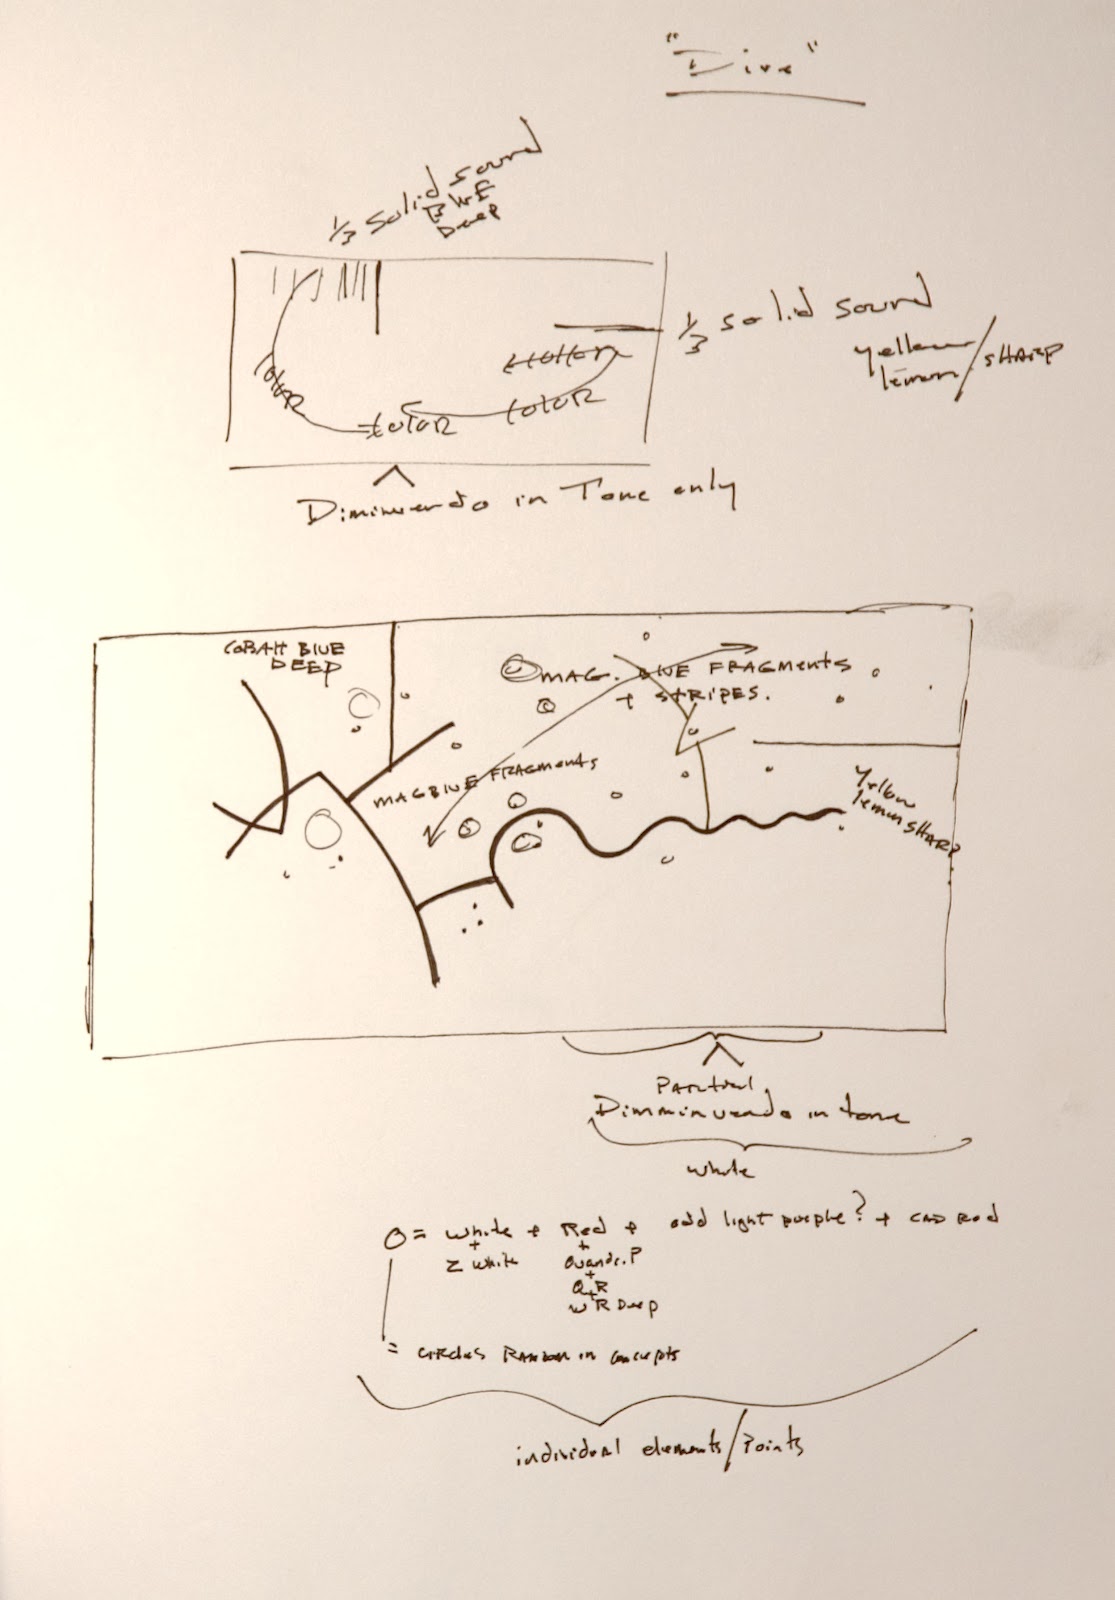 "Dive"
1/3 solid sound
Blue
Deep
1/3 solid sound
yellow
lemon/SHARP
COLOR
COLOR
COLOR
Diminuendo in Tone only
COBALT BLUE
DEEP
MAG. BLUE FRAGMENTS
+ STRIPES.
MAG BLUE FRAGMENTS
Yellow
lemon SHARP
Partial
Dimminuendo in tone
whole
O = white + Red + odd light purple? + CAD Red
+ +
Z white Quandc.P
+
Q R
+
W R Deep
= CIRCLES RANDOM in concepts
individual elements/Points